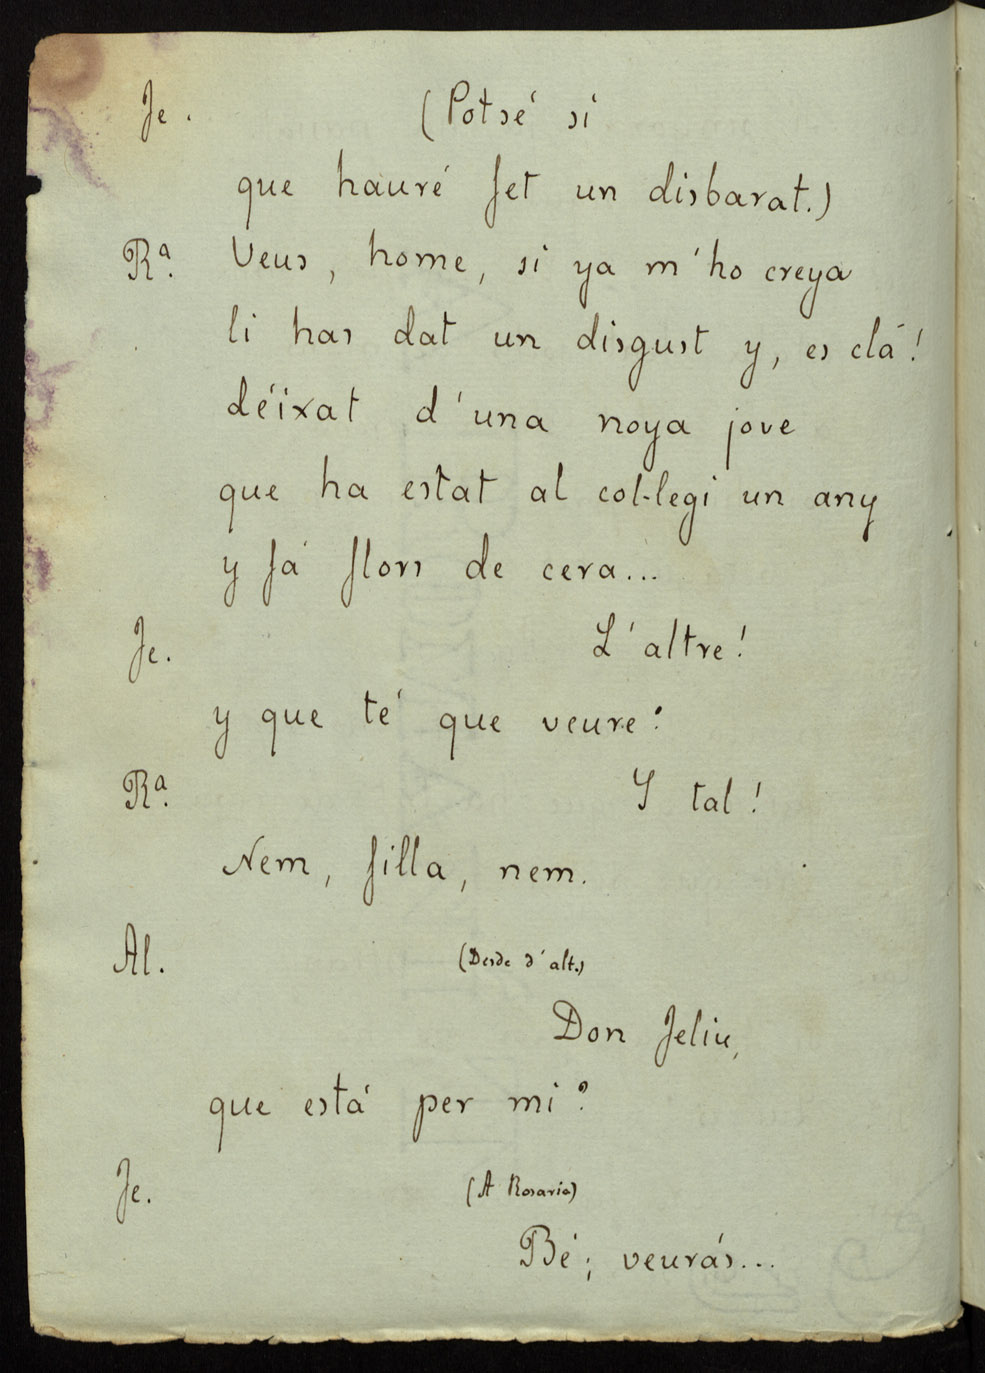 Fe. (Potsé si
que hauré fet un disbarat.)
Rª. Veus, home, si ya m'ho creya
li has dat un disgust y, es clá!
déixat d'una noya jove
que ha estat al col-legi un any
y fá flors de cera...
Fe. L'altre!
y que té que veure?
Rª. Y tal!
Nem, filla, nem.
Al. (Desde d'alt.)
Don Feliu,
que está per mi?
Fe. (A Rosario)
Bé; veurás...